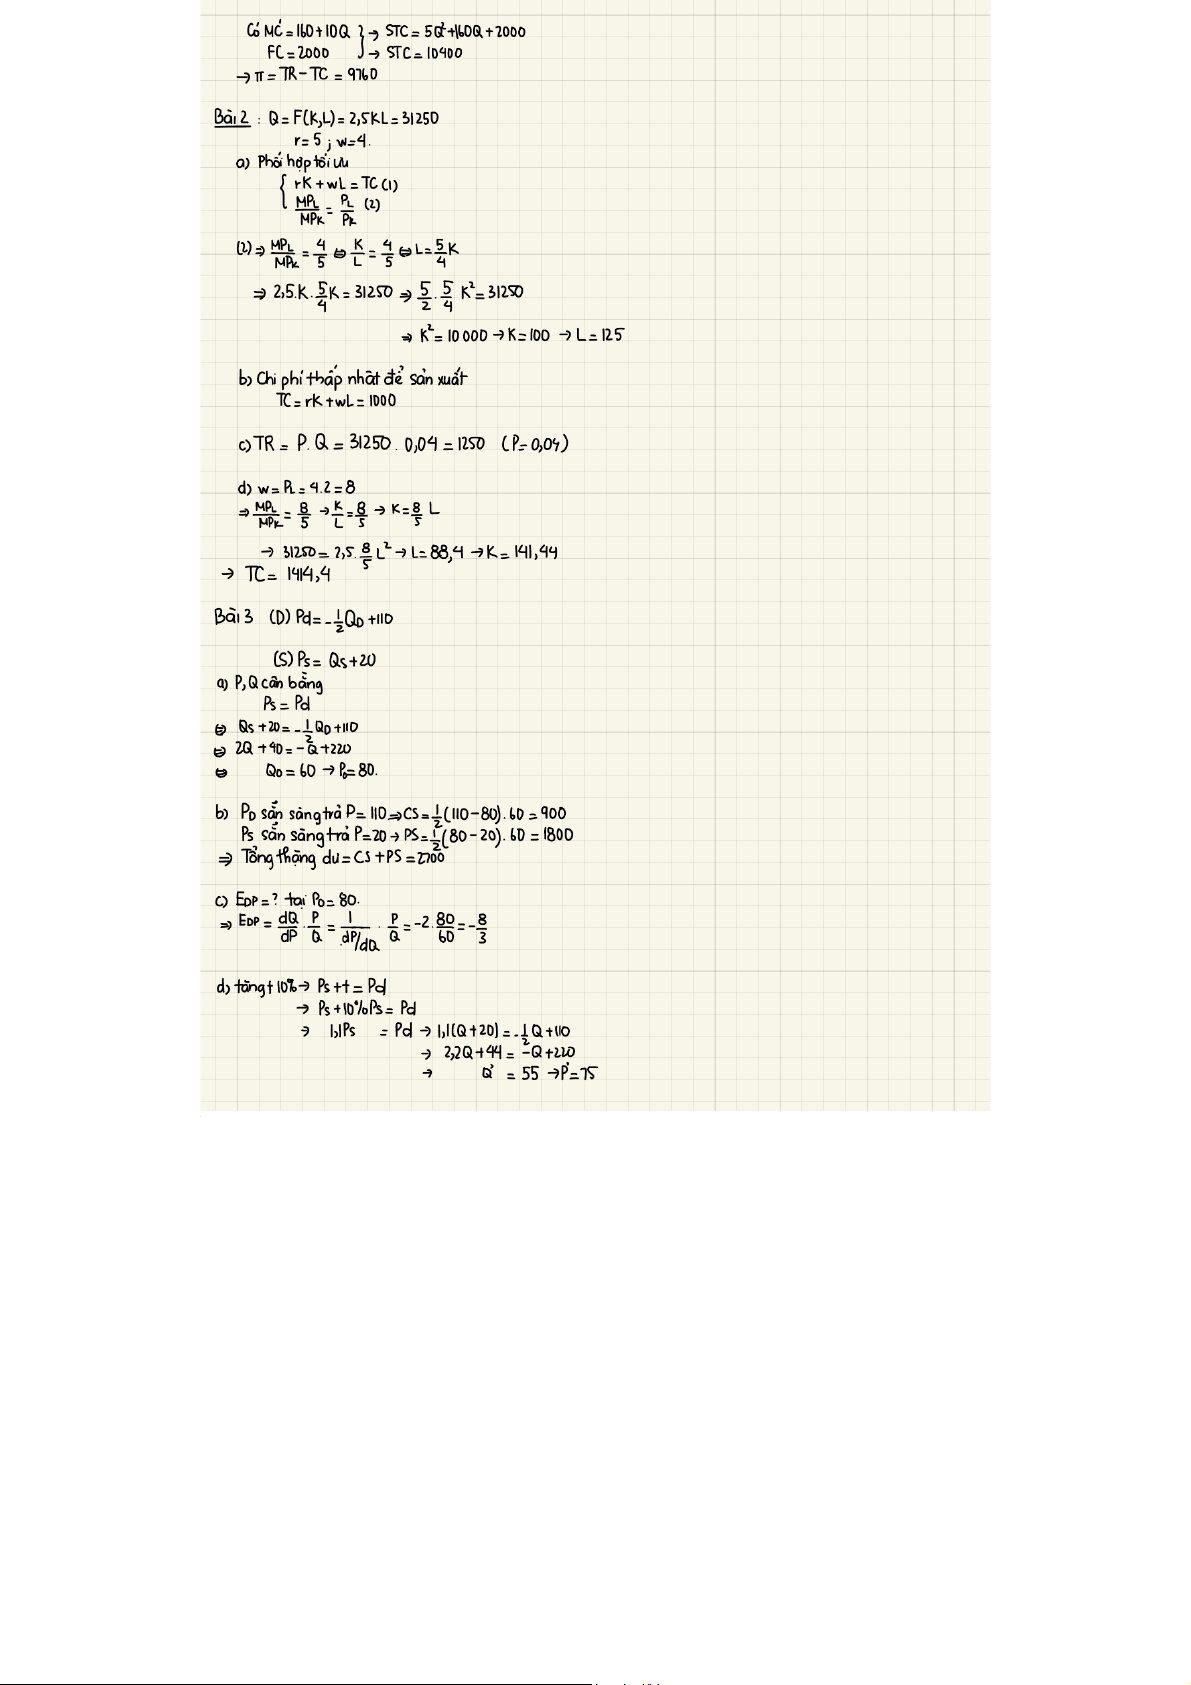 Có MC = 160 + 10Q } → STC = 5Q² + 160Q + 2000
FC = 2000 → STC = 10400
→ π = TR - TC = 9760
Bài 2 : Q = F(K,L) = 2,5KL = 31250
r = 5 ; w = 4.
a) Phối hợp tối ưu
{ rK + wL = TC (1)
MPL/MPK = PL/PK (2)
(2) ⇒ MPL/MPK = 4/5 ⇔ K/L = 4/5 ⇔ L = 5/4 K
⇒ 2,5.K. 5/4 K = 31250 ⇒ 5/2 . 5/4 K² = 31250
⇒ K² = 10 000 → K = 100 → L = 125
b) Chi phí thấp nhất để sản xuất
TC = rK + wL = 1000
c) TR = P.Q = 31250 . 0,04 = 1250 (P = 0,04)
d) w = PL = 4.2 = 8
⇒ MPL/MPK = 8/5 → K/L = 8/5 → K = 8/5 L
→ 31250 = 2,5. 8/5 L² → L = 88,4 → K = 141,44
→ TC = 1414,4
Bài 3 (D) Pd = -1/2 QD + 110
(S) Ps = Qs + 20
a) P, Q cân bằng
Ps = Pd
⇔ Qs + 20 = -1/2 QD + 110
⇔ 2Q + 40 = -Q + 220
⇔ Q0 = 60 → P0 = 80.
b) PD sẵn sàng trả P = 110 ⇒ CS = 1/2 (110 - 80). 60 = 900
Ps sẵn sàng trả P = 20 → PS = 1/2 (80 - 20). 60 = 1800
⇒ Tổng thặng dư = CS + PS = 2700
c) EDP = ? tại P0 = 80.
⇒ EDP = dQ/dP . P/Q = 1/dP/dQ . P/Q = -2. 80/60 = -8/3
d) tăng t 10% → Ps + t = Pd
→ Ps + 10% Ps = Pd
→ 1,1Ps = Pd → 1,1(Q + 20) = -1/2 Q + 110
→ 2,2Q + 44 = -Q + 220
→ Q' = 55 → P' = 75